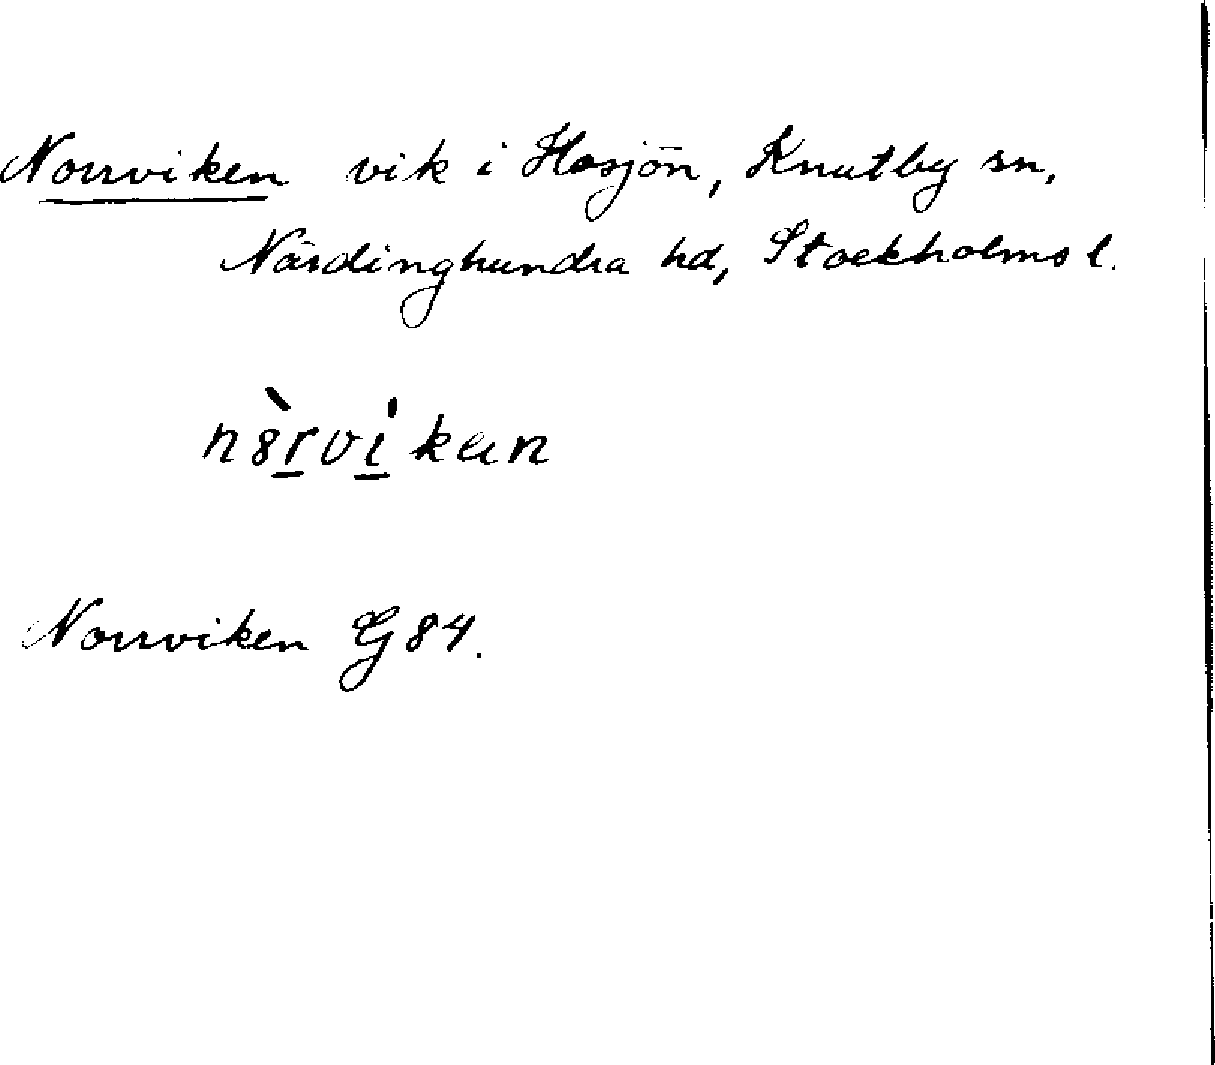 Norrviken vik i Hosjön, Knutby sn,
Närdinghundra hd, Stockholms l.
Norrviken G 84.